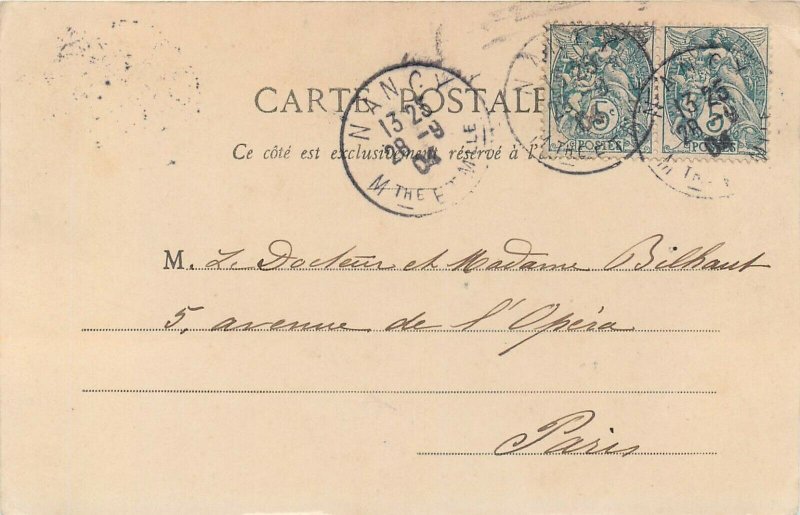 CARTE POSTALE
Ce côté est exclusivement réservé à l'
NANCY
13 25
28 -9
04
MTHE ET MLLE
5
POSTES
5
POSTES
13 25
28 -9
04
M. Le Docteur et Madame Bilhaut
5, avenue de l'Opéra
Paris